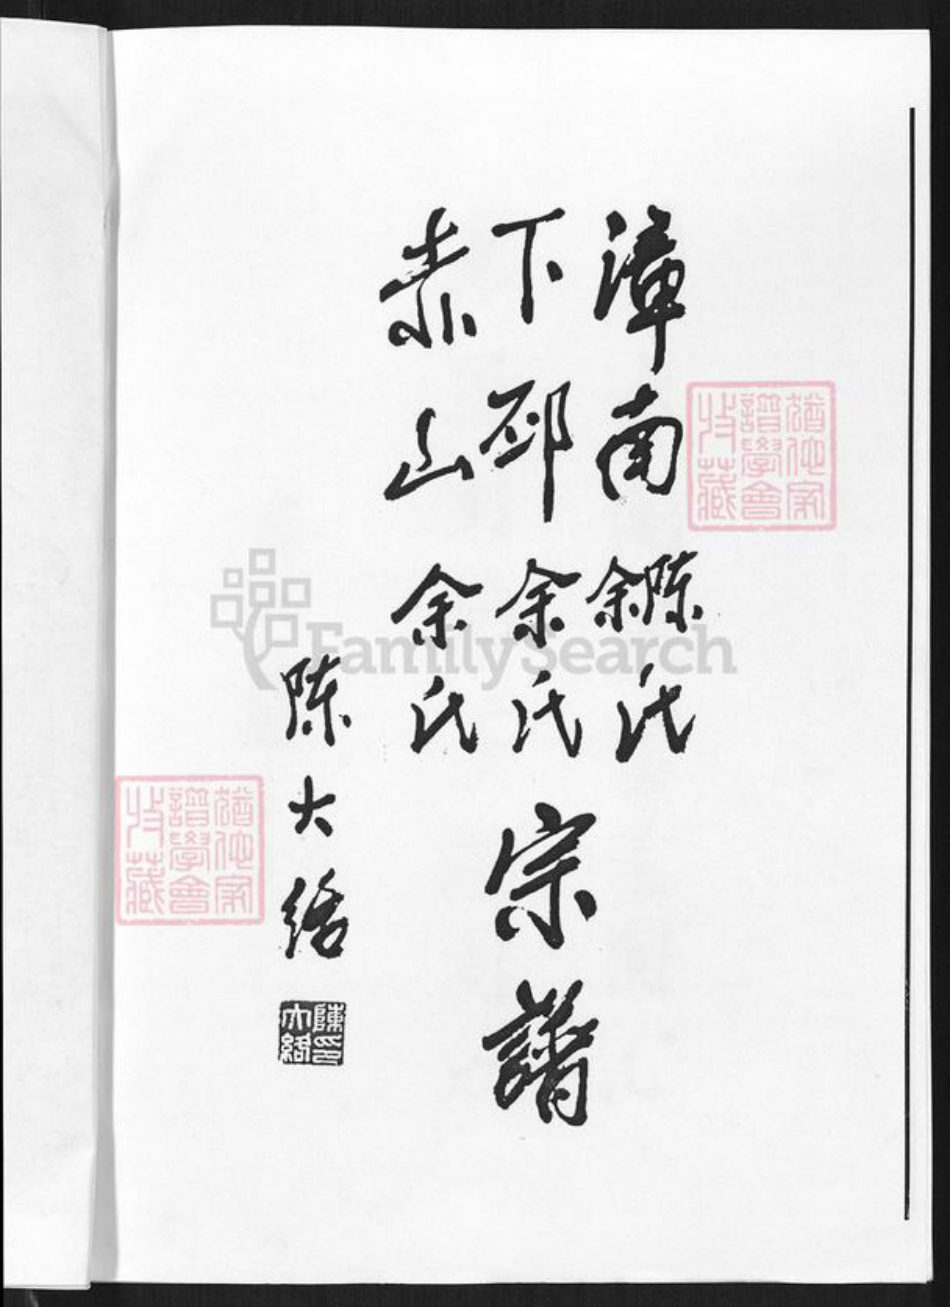 漳南陈余氏
下邳余氏
赤山余氏
宗譜
陈大络
陳大絡印
猶他家譜學會收藏
猶他家譜學會收藏
FamilySearch